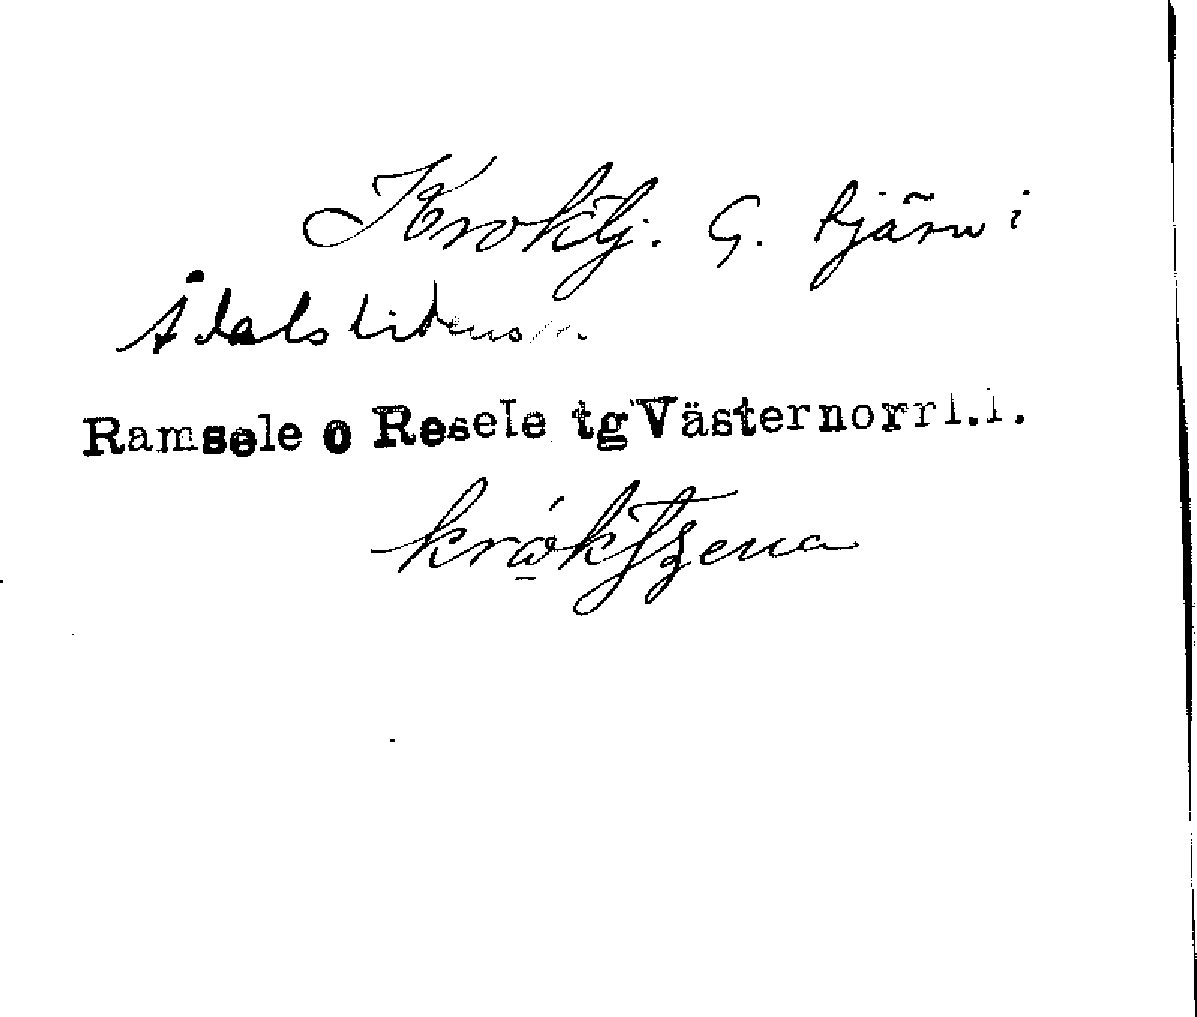 Kroktj. G. tjärn i
Ådalslidens
Ramsele o Resele tg Västernorrl.l.